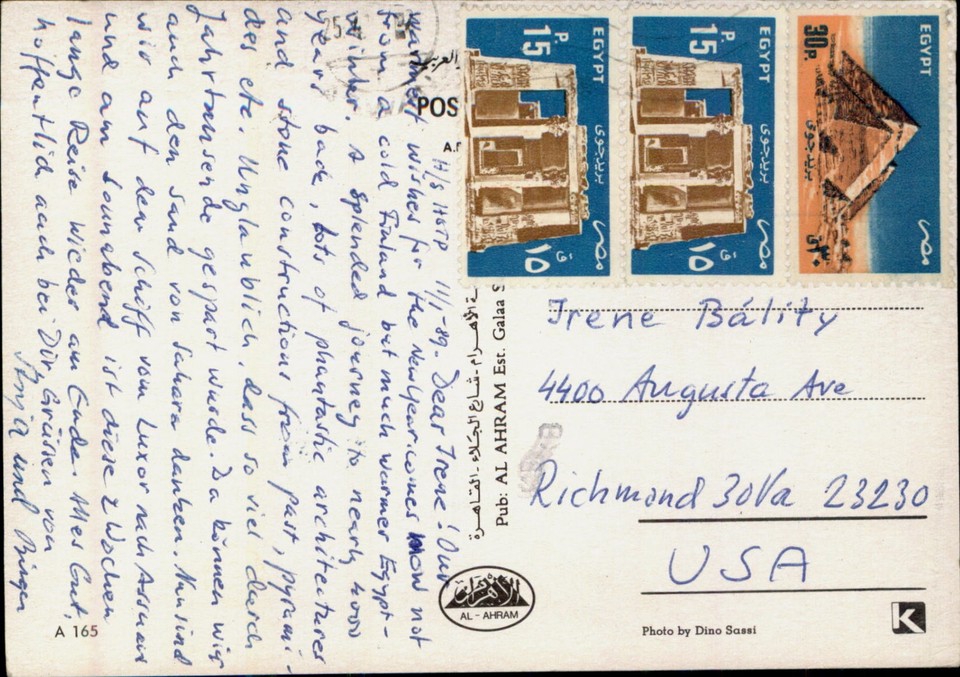 H/S HOTP 11/1-89. Dear Irene! Our
warmest wishes for the New Year comes now not
from a cold Finland but much warmer Egypt-
winter. A splended journey to nearly 4000
years back, lots of phantastic architectures
and stone constructions from past, pyrami-
des etc. Unglaublich, dass so viel durch
Jahrtausende gespart wurde. Da können wir
auch den Sand von Sahara danken. Nun sind
wir auf dem Schiff von Luxor nach Assuan
und am Sonnabend ist diese 2 Wochen
lange Reise wieder am Ende. Alles Gut,
hoffentlich auch bei Dir. Grüssen von
Anja und Birger
A 165
25.
POS
Pub: AL AHRAM Est. Galaa S
ة الأهـرام - شارع الجلاء - القـاهـرة
AL - AHRAM
EGYPT
15 P.
بريد جوى
مصر
١٥ ق
EGYPT
15 P.
بريد جوى
مصر
١٥ ق
EGYPT
30 P.
بريد جوى
مصر
٣٠ ق
Irene Bálity
4400 Augusta Ave
Richmond 30 Va 23230
USA
Photo by Dino Sassi
K